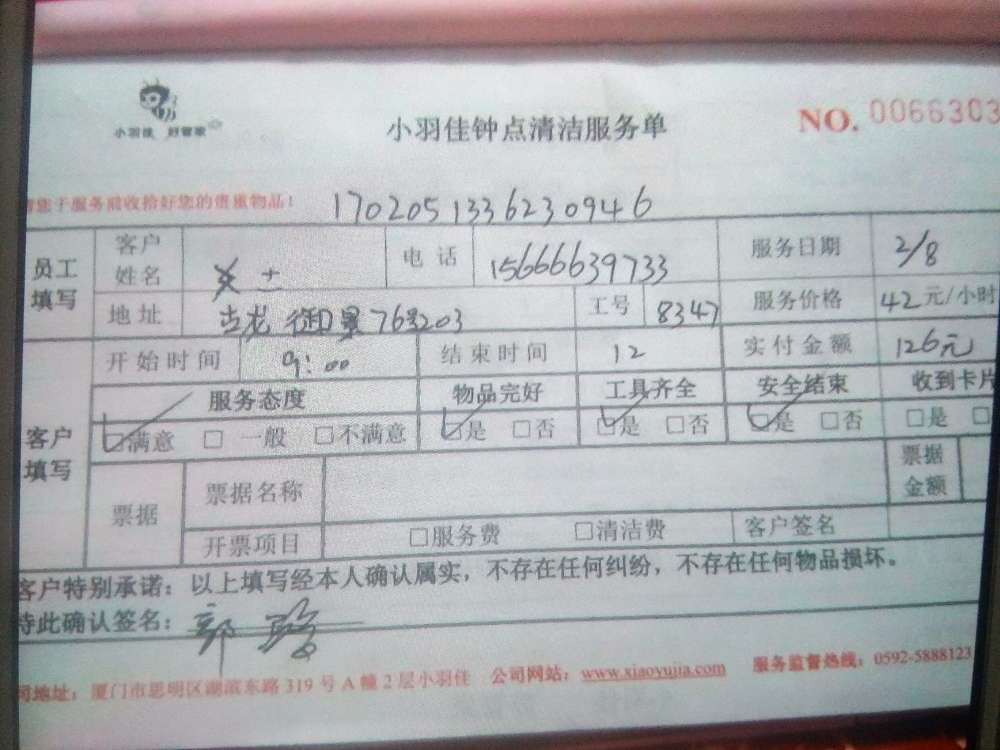 小羽佳 好管家
小羽佳钟点清洁服务单
NO. 0066303
您于服务前收拾好您的贵重物品！
170205133623094​6
员工填写 客户姓名 电话 15666639733 服务日期 2/8
地址 御景76号203 工号 8347 服务价格 42元/小时
开始时间 9:00 结束时间 12 实付金额 126元
客户填写 服务态度 物品完好 工具齐全 安全结束 收到卡片
□满意 □一般 □不满意 □是 □否 □是 □否 □是 □否 □是 □
票据 票据名称 票据金额
开票项目 □服务费 □清洁费 客户签名
客户特别承诺：以上填写经本人确认属实，不存在任何纠纷，不存在任何物品损坏。
特此确认签名：郭
司地址：厦门市思明区湖滨东路319号A幢2层小羽佳 公司网站：www.xiaoyujia.com 服务监督热线：0592-5888123